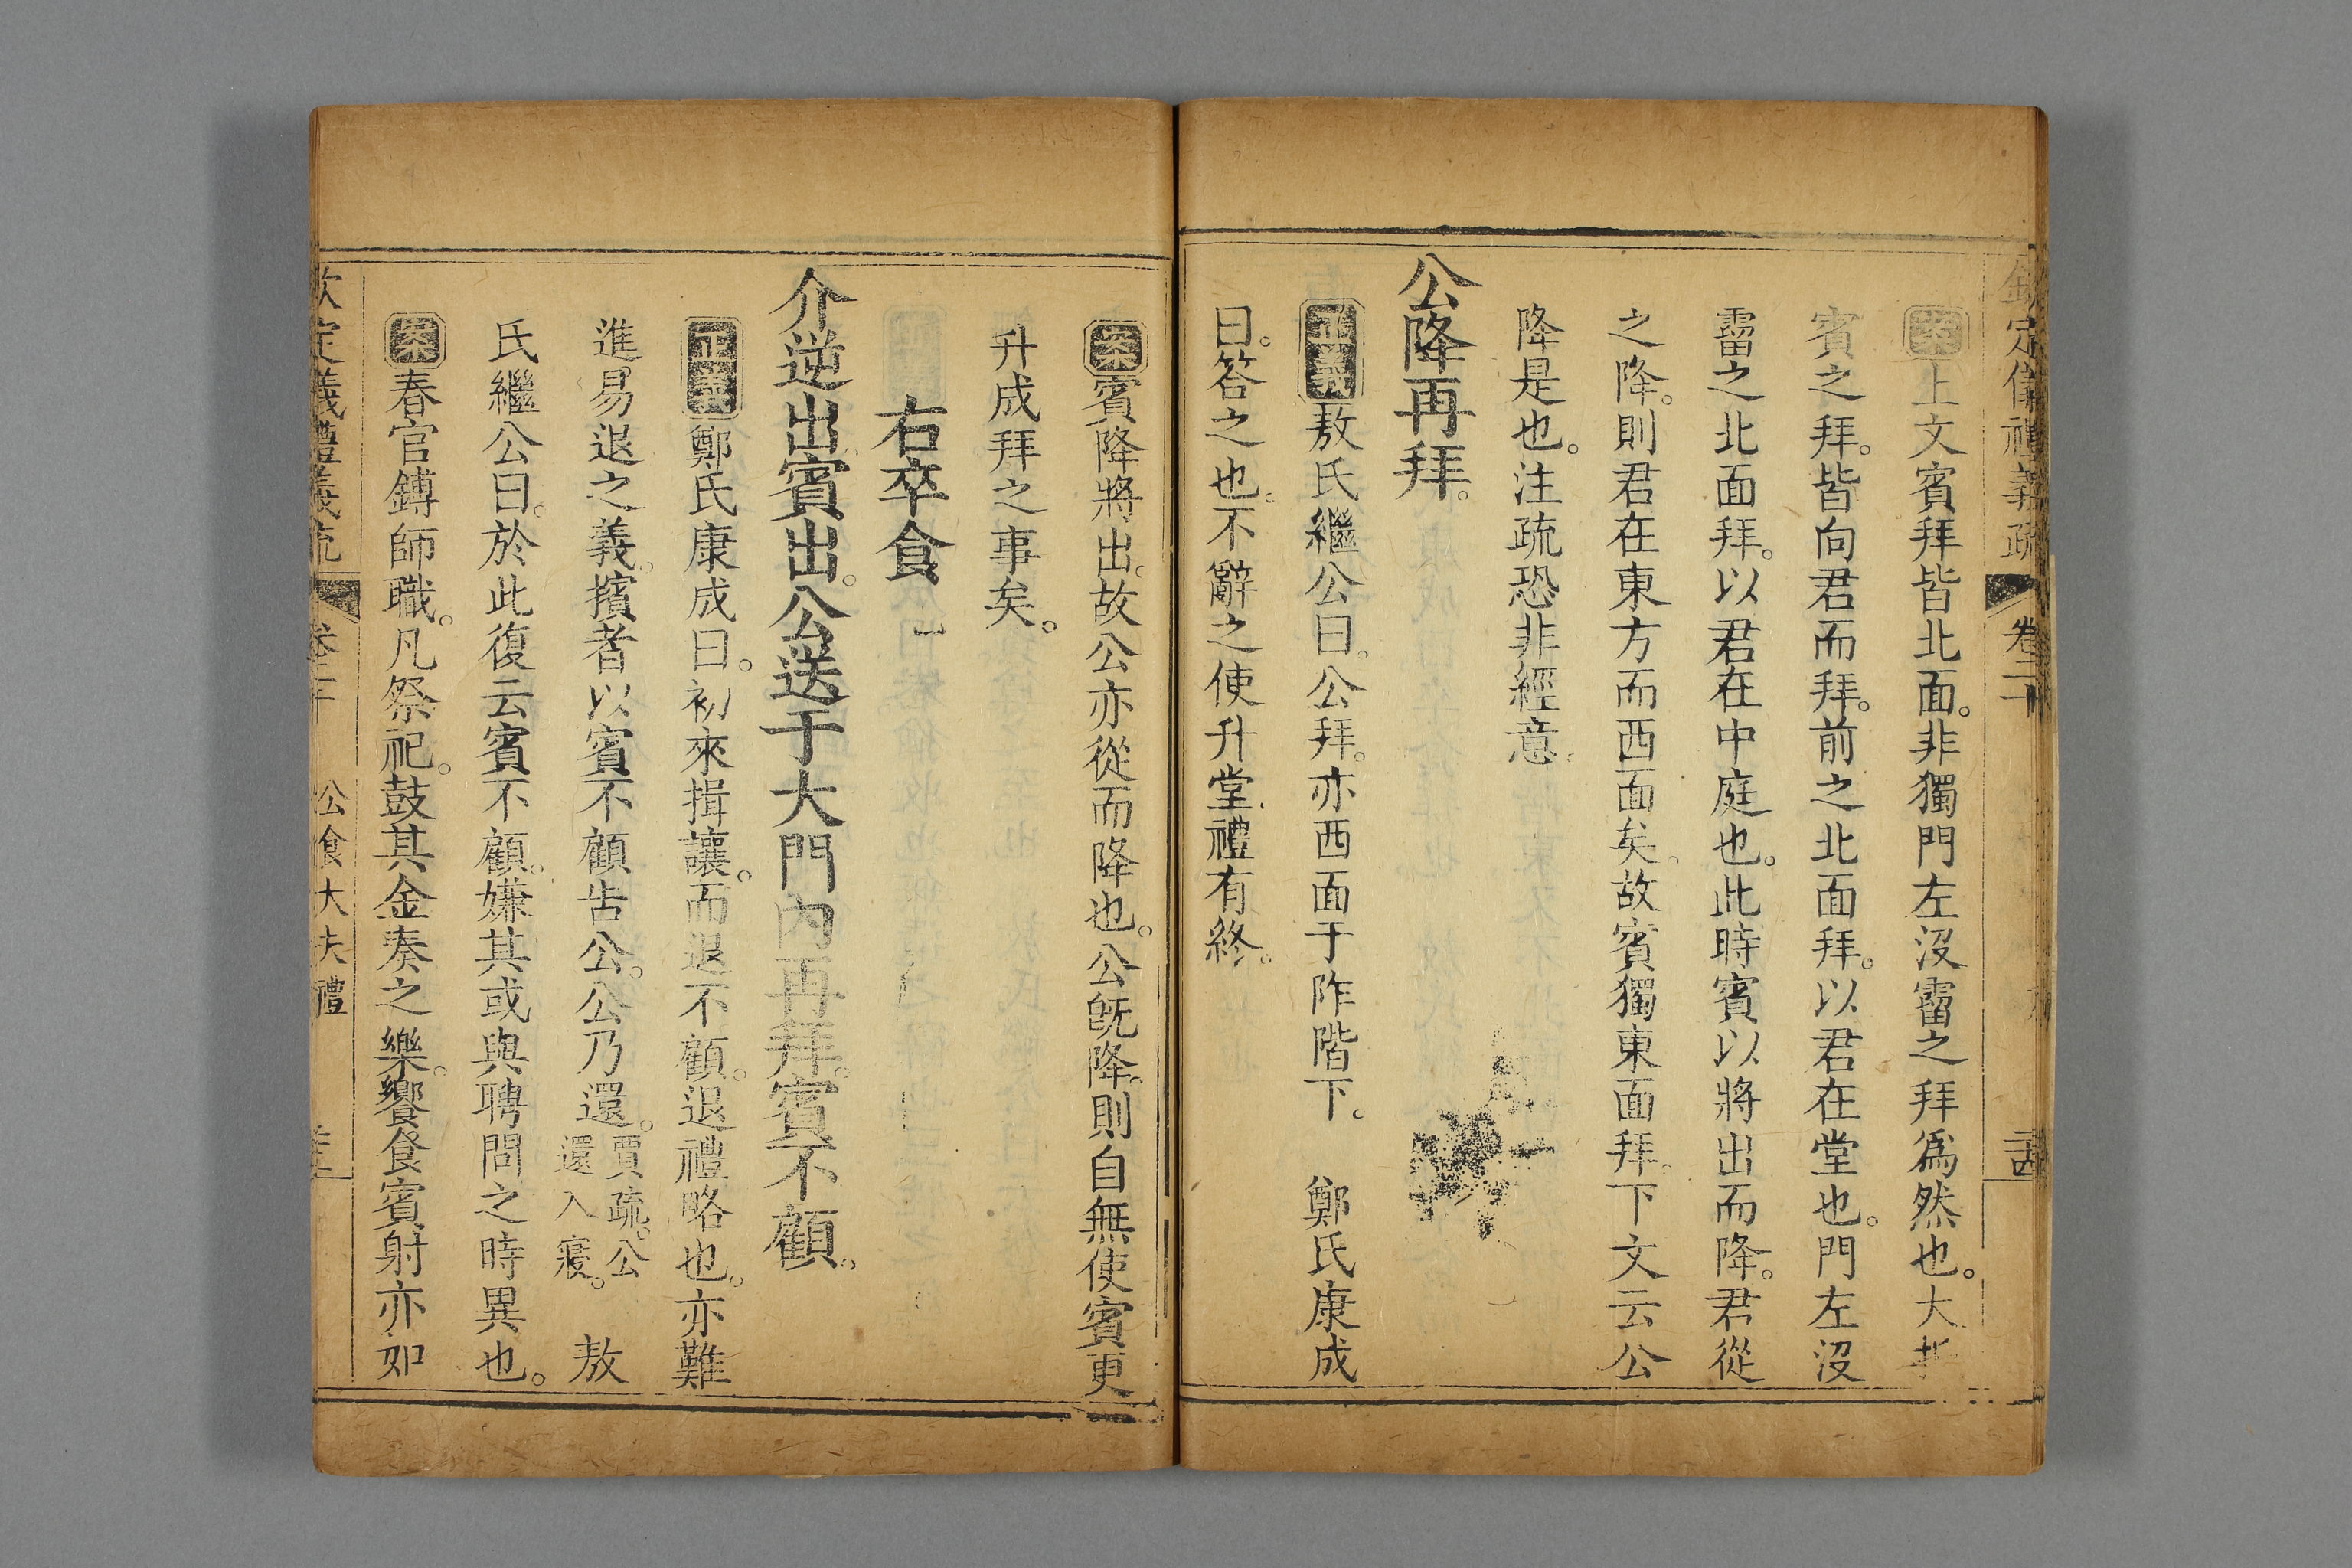 欽定儀禮義疏 卷二十 二十四
案上文賓拜皆北面。非獨門左沒霤之拜爲然也。大
賓之拜。皆向君而拜。前之北面拜。以君在堂也。門左沒
霤之北面拜。以君在中庭也。此時賓以將出而降。君從
之降。則君在東方而西面矣。故賓獨東面拜。下文云公
降是也。注疏恐非經意。
公降再拜。
正義敖氏繼公曰。公拜。亦西面于阼階下。 鄭氏康成
曰。答之也。不辭之使升堂。禮有終。
案賓降將出。故公亦從而降也。公旣降。則自無使賓更
升成拜之事矣。
右卒食
介逆出賓出。公送于大門內再拜。賓不顧。
正義鄭氏康成曰。初來揖讓。而退不顧。退禮略也。亦難
進易退之義。擯者以賓不顧告公。公乃還。賈疏。公還入寢。 敖
氏繼公曰。於此復云賓不顧。嫌其或與聘問之時異也。
案春官鎛師職。凡祭祀。鼓其金奏之樂。饗食賓射亦如
欽定儀禮義疏 卷二十 公食大夫禮